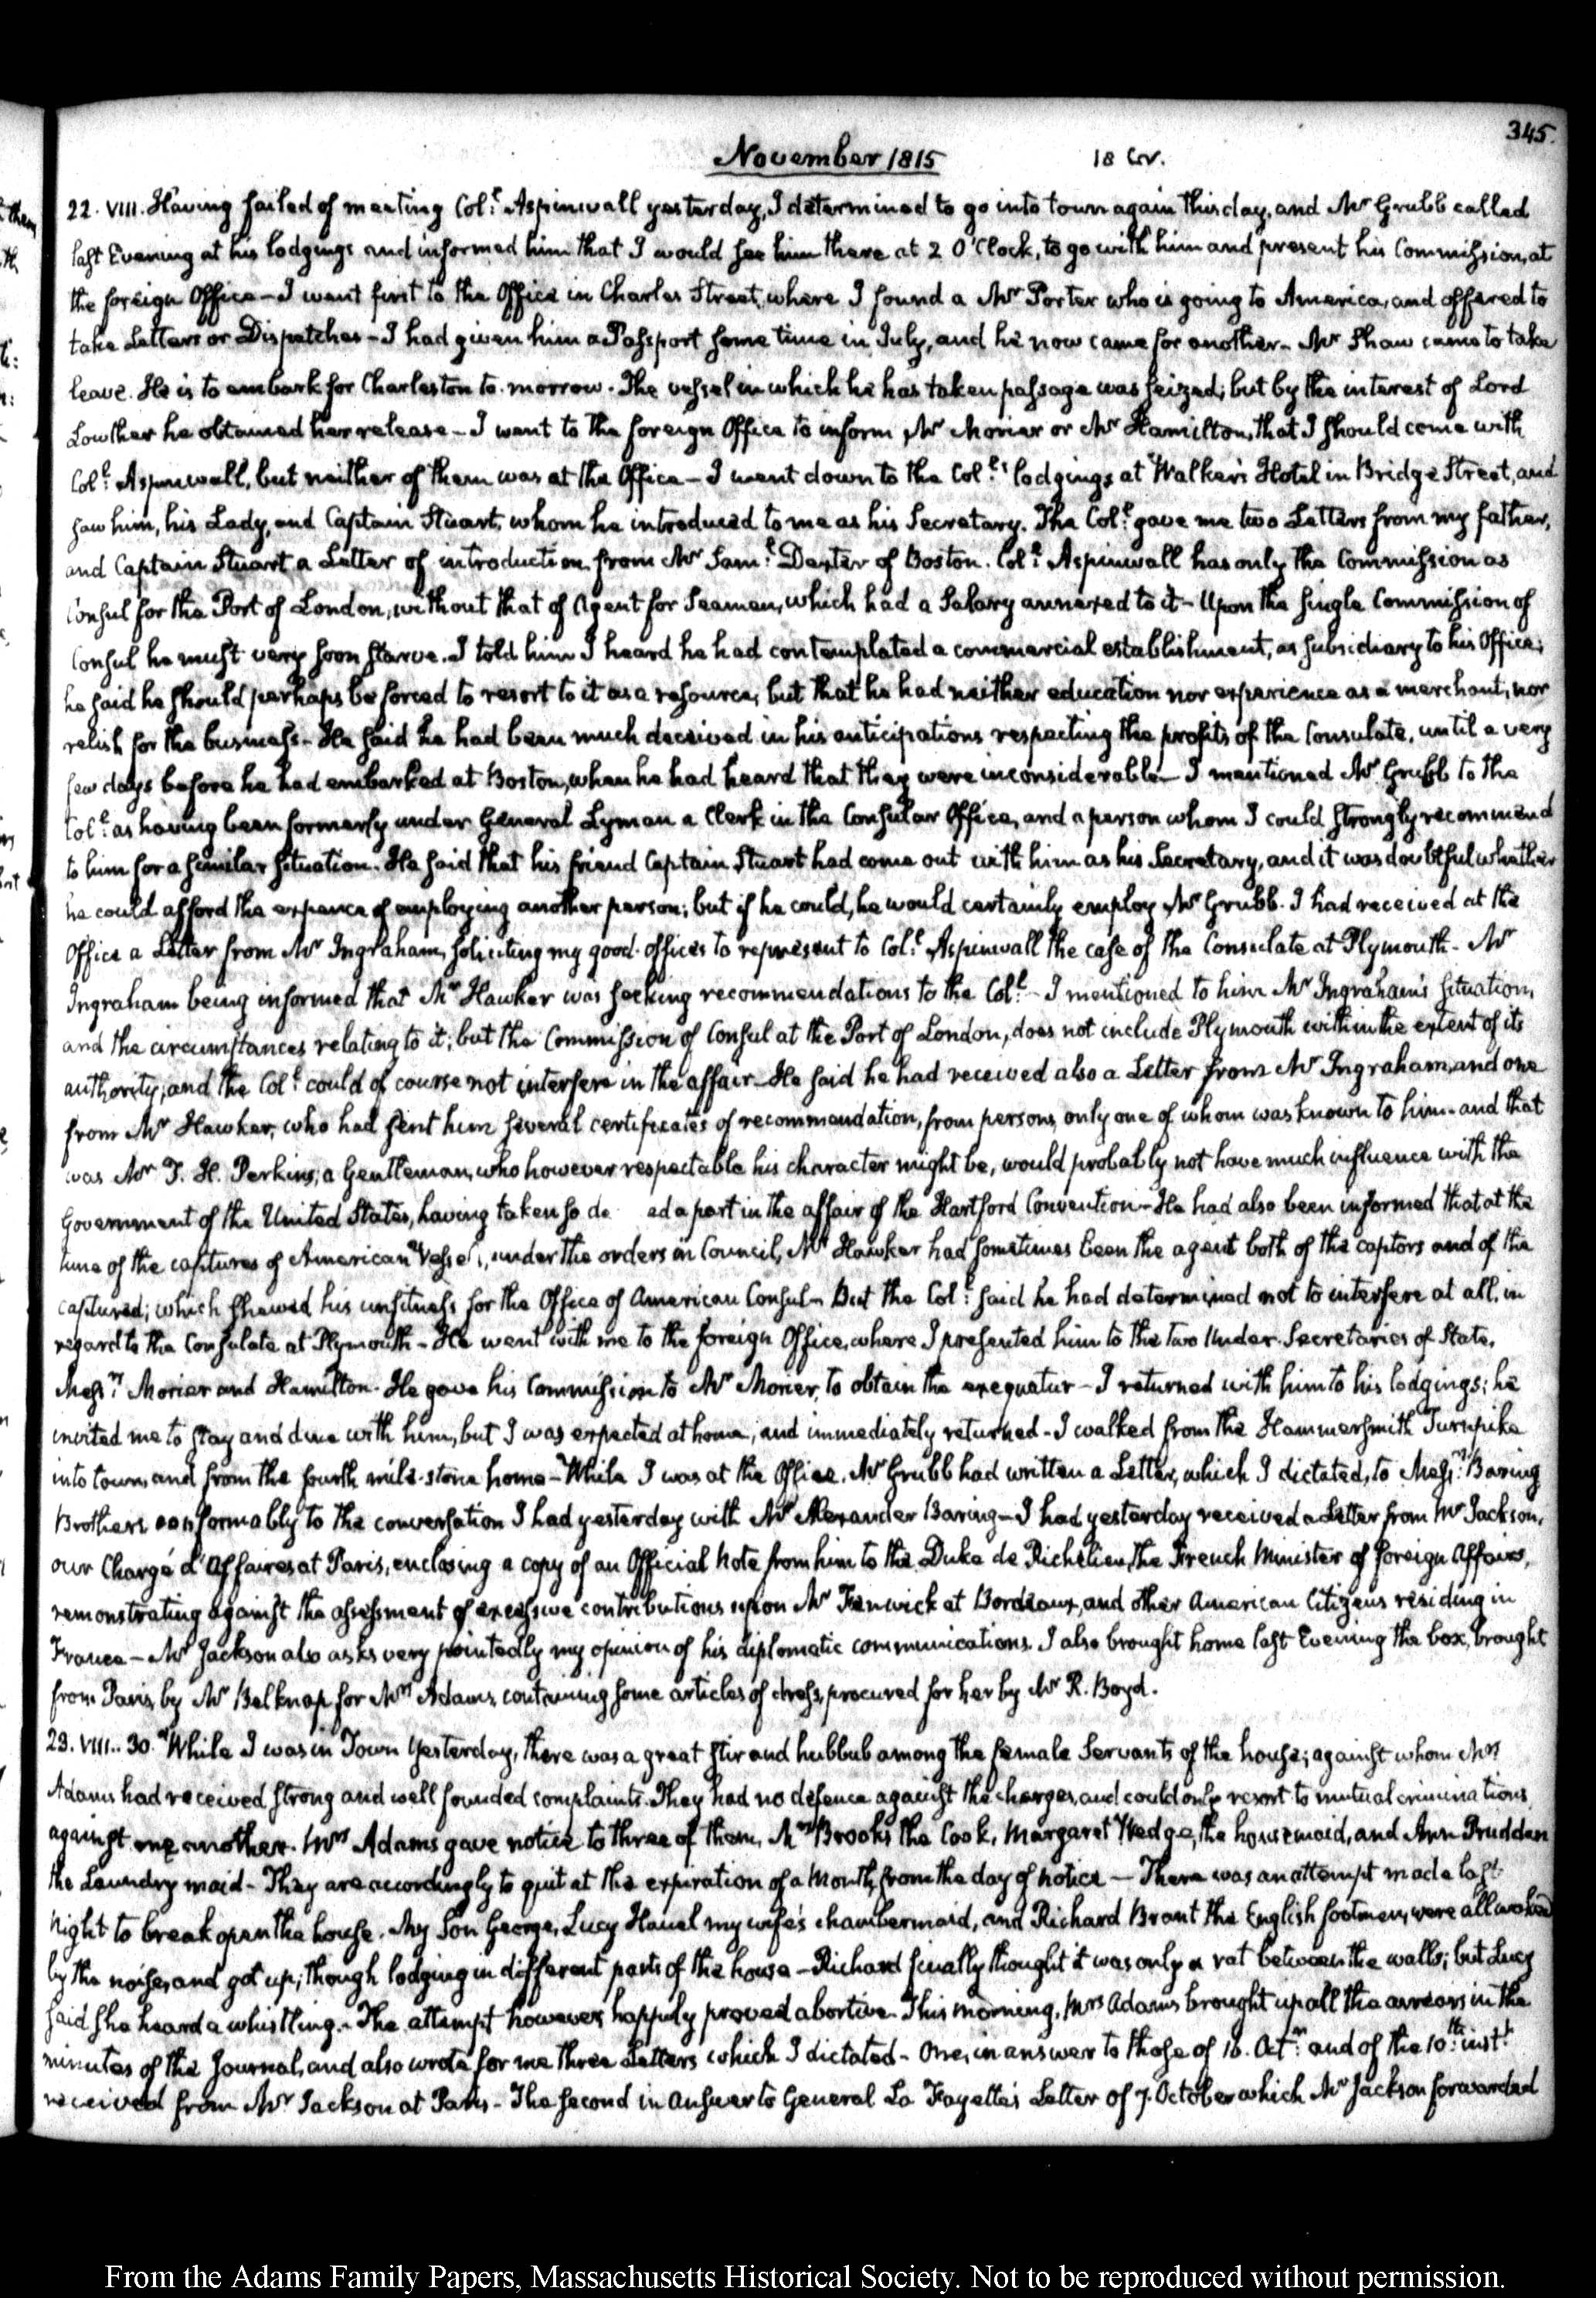 345.
November 1815
18 Cor.
22. VIII. Having failed of meeting Coll: Aspinwall yesterday, I determined to go into town again this day, and Mr Grubb called
last Evening at his lodgings and informed him that I would see him there at 2 O'Clock, to go with him and present his Commission, at
the foreign Office — I went first to the Office in Charles Street, where I found a Mr Porter who is going to America, and offered to
take Letters or Dispatches — I had given him a Passport some time in July, and he now came for another — Mr Shaw came to take
leave. He is to embark for Charleston to-morrow. The vessel in which he has taken passage was seized; but by the interest of Lord
Lowther he obtained her release — I went to the foreign Office to inform Mr Morier or Mr Hamilton, that I should come with
Coll: Aspinwall, but neither of them was at the Office — I went down to the Coll:s lodgings at Walker's Hotel in Bridge Street, and
saw him, his Lady, and Captain Stuart, whom he introduced to me as his Secretary. The Coll: gave me two Letters from my father,
and Captain Stuart a Letter of introduction from Mr Saml: Dexter of Boston. Coll: Aspinwall has only the Commission as
Consul for the Port of London, without that of Agent for Seamen, which had a Salary annexed to it — Upon the single Commission of
Consul he must very soon starve. I told him I heard he had contemplated a commercial establishment, as subsidiary to his Office;
he said he should perhaps be forced to resort to it as a resource, but that he had neither education nor experience as a merchant, nor
relish for the business — He said he had been much deceived in his anticipations respecting the profits of the Consulate, until a very
few days before he had embarked at Boston, when he had heard that they were inconsiderable — I mentioned Mr Grubb to the
Coll: as having been formerly under General Lyman a Clerk in the Consular Office, and a person whom I could strongly recommend
to him for a similar situation. He said that his friend Captain Stuart had come out with him as his Secretary, and it was doubtful whether
he could afford the expence of employing another person; but if he could, he would certainly employ Mr Grubb. I had received at the
Office a Letter from Mr Ingraham, soliciting my good-offices to represent to Coll: Aspinwall the case of the Consulate at Plymouth — Mr
Ingraham being informed that Mr Hawker was seeking recommendations to the Coll: — I mentioned to him Mr Ingraham's situation,
and the circumstances relating to it; but the Commission of Consul at the Port of London, does not include Plymouth within the extent of its
authority; and the Coll: could of course not interfere in the affair — He said he had received also a Letter from Mr Ingraham, and one
from Mr Hawker, who had sent him several certificates of recommendation, from persons only one of whom was known to him — and that
was Mr T. H. Perkins; a Gentleman, who however respectable his character might be, would probably not have much influence with the
Government of the United States, having taken so de ed a part in the affair of the Hartford Convention — He had also been informed that at the
time of the captures of American Vessels, under the orders in Council, Mr Hawker had sometimes been the agent both of the captors and of the
captured; which shewed his unfitness for the Office of American Consul — But the Coll: said he had determined not to interfere at all, in
regard to the Consulate at Plymouth — He went with me to the foreign Office, where I presented him to the two Under-Secretaries of State,
Messrs: Morier and Hamilton. He gave his Commission to Mr Morier, to obtain the exequatur — I returned with him to his lodgings; he
invited me to stay and dine with him, but I was expected at home, and immediately returned — I walked from the Hammersmith Turnpike
into town, and from the fourth mile-stone home — While I was at the Office, Mr Grubb had written a Letter, which I dictated, to Messrs: Baring
Brothers conformably to the conversation I had yesterday with Mr Alexander Baring — I had yesterday received a Letter from Mr Jackson,
our Chargé d'Affaires at Paris, enclosing a copy of an Official Note from him to the Duke de Richelieu, the French Minister of foreign Affairs,
remonstrating against the assessment of excessive contributions upon Mr Fenwick at Bordeaux, and other American Citizens residing in
France — Mr Jackson also asks very pointedly my opinion of his diplomatic communications. I also brought home last Evening the box, brought
from Paris, by Mr Belknap for Mrs Adams, containing some articles of dress, procured for her by Mr R. Boyd.
23. VIII.. 30. While I was in Town yesterday, there was a great stir and hubbub among the female Servants of the house; against whom Mrs
Adams had received strong and well founded complaints. They had no defence against the charges, and could only resort to mutual criminations
against one another. Mrs Adams gave notice to three of them, Mrs Brooks the Cook, Margaret Wedge, the housemaid, and Ann Prudden
the Laundry maid — They are accordingly to quit at the expiration of a Month, from the day of notice — There was an attempt made last
Night to break open the house. My Son George, Lucy Houel my wife's chambermaid, and Richard Brant the English footman, were all awaked
by the noise, and got up; though lodging in different parts of the house — Richard finally thought it was only a rat between the walls; but Lucy
said she heard a whistling. — The attempt however happily proved abortive. This morning, Mrs Adams brought up all the arrears in the
minutes of the Journal, and also wrote for me three Letters which I dictated — One, in answer to those of 16. Octr: and of the 10th: inst:
received from Mr Jackson at Paris — The second in answer to General La Fayette's Letter of 7. October which Mr Jackson forwarded
From the Adams Family Papers, Massachusetts Historical Society. Not to be reproduced without permission.